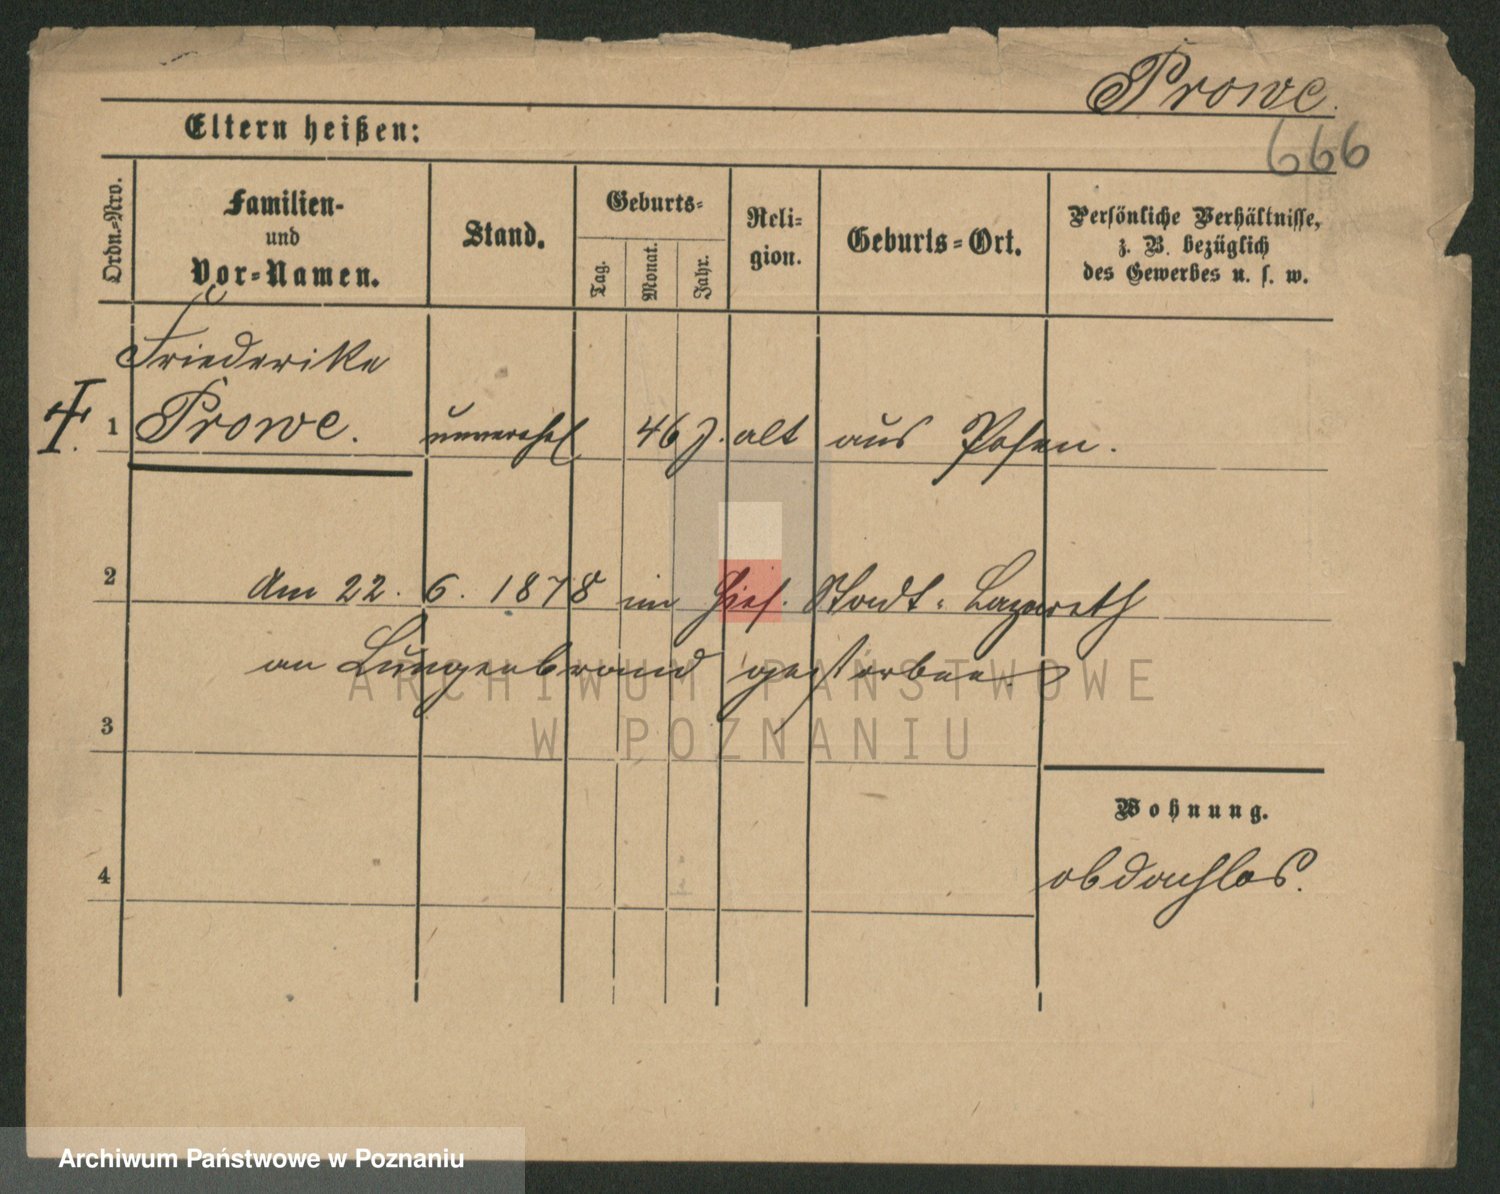 Prowe.
666
Eltern heißen:
Ordn.-Nro.
Familien-
und
Vor-Namen.
Stand.
Geburts-
Tag.
Monat.
Jahr.
Reli-
gion.
Geburts-Ort.
Persönliche Verhältnisse,
z. B. bezüglich
des Gewerbes u. s. w.
Friederike
1 Prowe. unverehel 46 J. alt aus Posen.
2 Am 22. 6. 1878 im hies. Stadt-Lazareth
an Lungenbrand gestorben.
3
Wohnung.
4 obdachlos.
ARCHIWUM PAŃSTWOWE
W POZNANIU
Archiwum Państwowe w Poznaniu